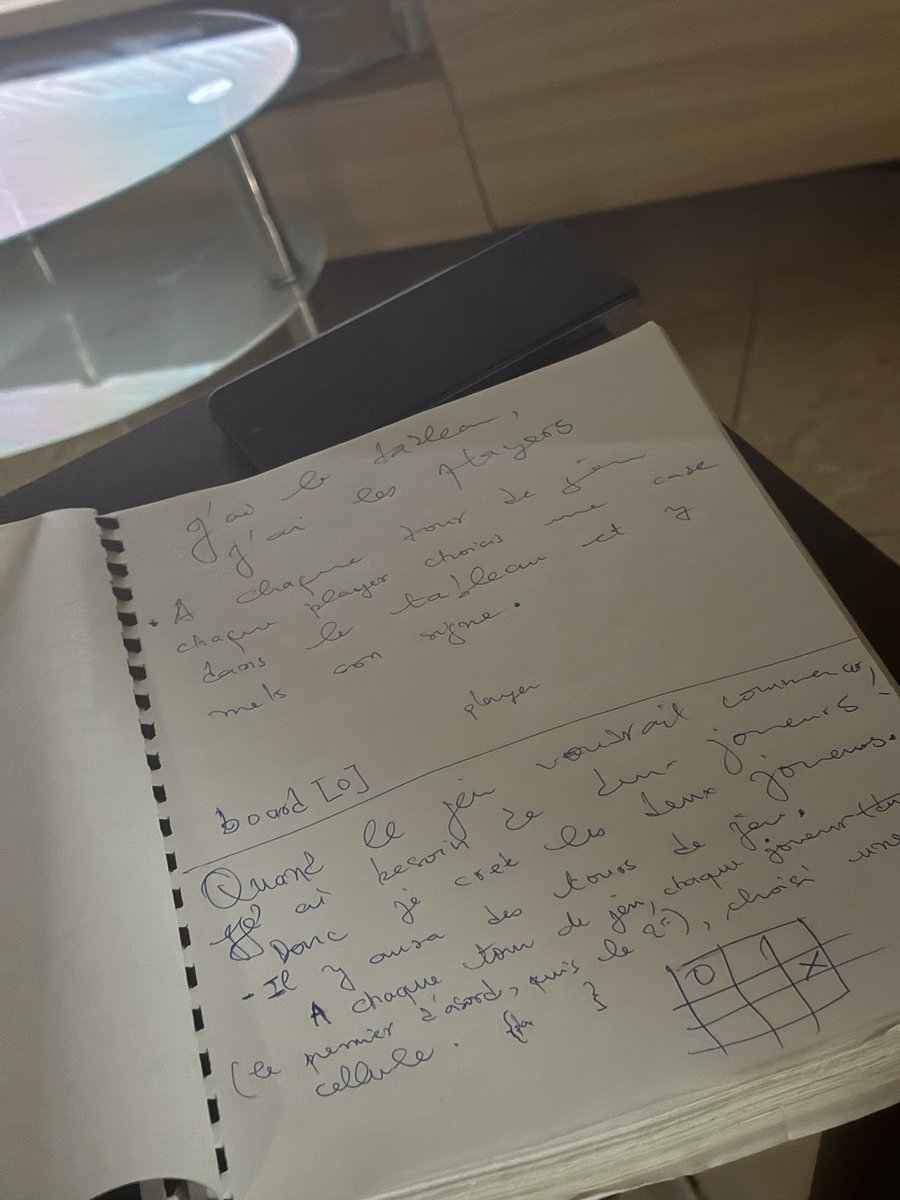 J'ai le tableau,
J'ai les players
• A chaque tour de jeu
chaque player choisis une case
dans le tableau et y
mets son signe.
player
board [0]
Quand le jeu voudrait commencer,
j'ai besoin de deux joueurs.
Donc je crée les deux joueurs.
- Il y aura des tours de jeu.
A chaque tour de jeu, chaque joueur
(le premier d'abord, puis le 2e), choisi une
cellule. { }
0 1 X